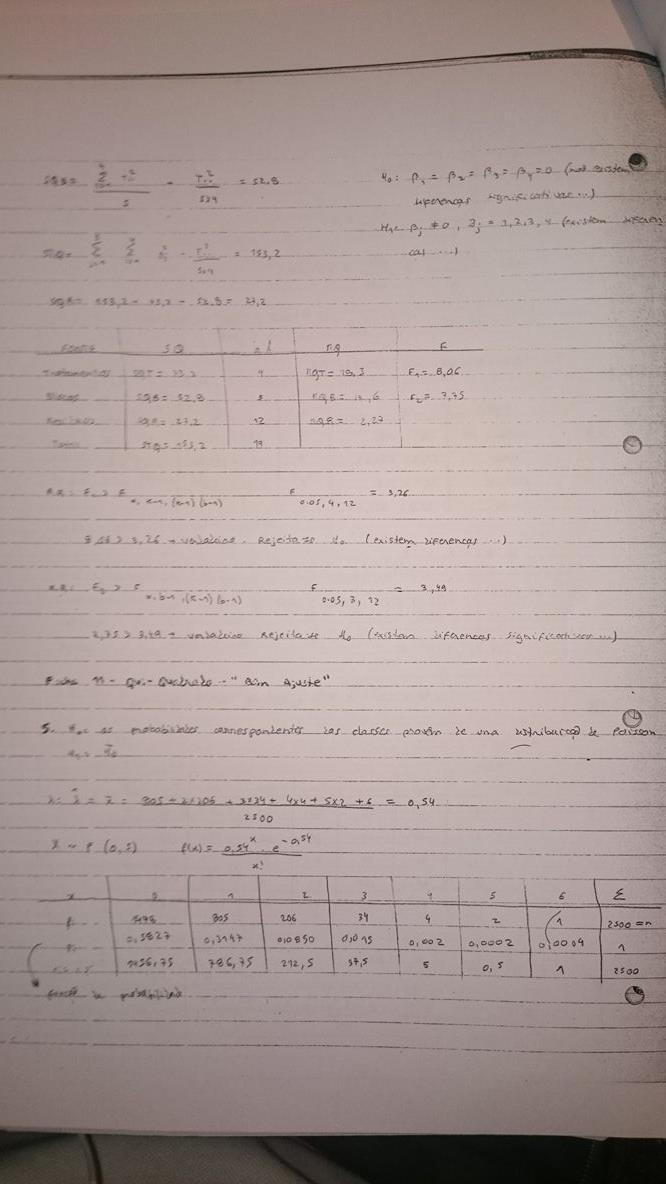 SQB = Σ T.²  / 5 - T..² / 5x4 = 52,8
H₀: β₁ = β₂ = β₃ = β₄ = 0 (não existem
diferenças significativas ...)
H₁: βj ≠ 0, ∃j = 1,2,3,4 (existem diferen
ças ...)
STQ = Σ Σ - T..² / 5x4 = 153,2
SQR = 153,2 - - 52,8 = 27,2
SQ gl MQ F
Tratamentos SQT = 4 MQT = 18,3 F₁ = 8,06
Blocos SQB = 52,8 MQB = 17,6 F₂ = 7,75
Resíduos SQR = 27,2 12 MQR = 2,27
Total STQ = 153,2 19
F₁ > F α, k-1, (k-1)(b-1) F 0.05, 4, 12 = 3,26
> 3,26 → verdadeiro. Rejeita-se H₀ (existem diferenças ...)
F₂ > F α, b-1, (k-1)(b-1) F 0.05, 3, 12 = 3,49
> 3,49 → verdadeiro Rejeita-se H₀ (existem diferenças significativas ...)
11 - Qui-Quadrado - "Bom Ajuste"
5. H₀: as probabilidades correspondentes das classes provêm de uma distribuição de Poisson
H₁: H̄₀
λ̂ = x̄ = 805 + 2x206 + 3x34 + 4x4 + 5x2 + 6 / 2500 = 0,54
X ~ P (0,5) f(x) = 0,54ˣ · e^-0,54 / x!
x 0 1 2 3 4 5 6 Σ
805 206 34 4 2 1 2500 = n
0,5827 0,3147 0,0850 0,015 0,002 0,0002 0,0004 1
1456,75 786,75 212,5 37,5 5 0,5 1 2500
função de probabilidade